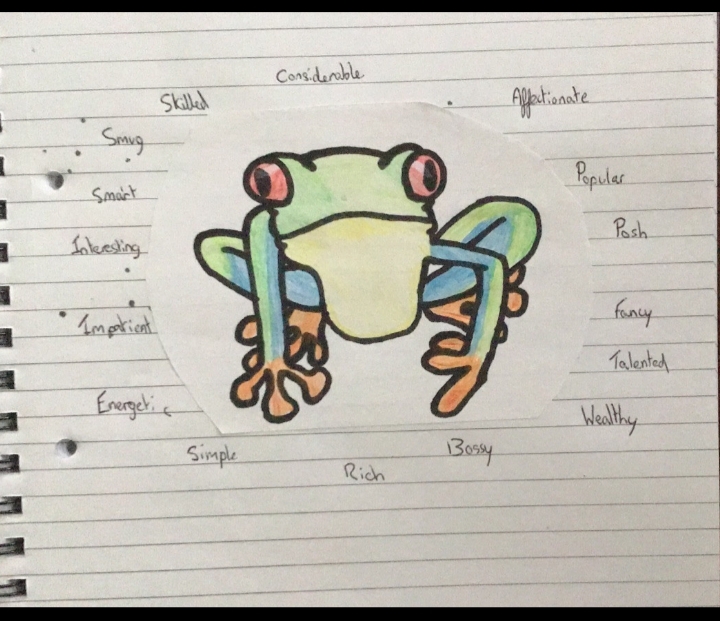 Considerable
Skilled
Affectionate
Smug
Popular
Smart
Posh
Interesting
Fancy
Impatient
Talented
Energetic
Wealthy
Simple
Bossy
Rich